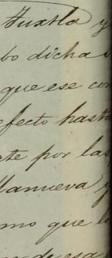 Tuxtla y
bo dicha
que ese con
efecto hasta
te por las
llanueva y
mo que l